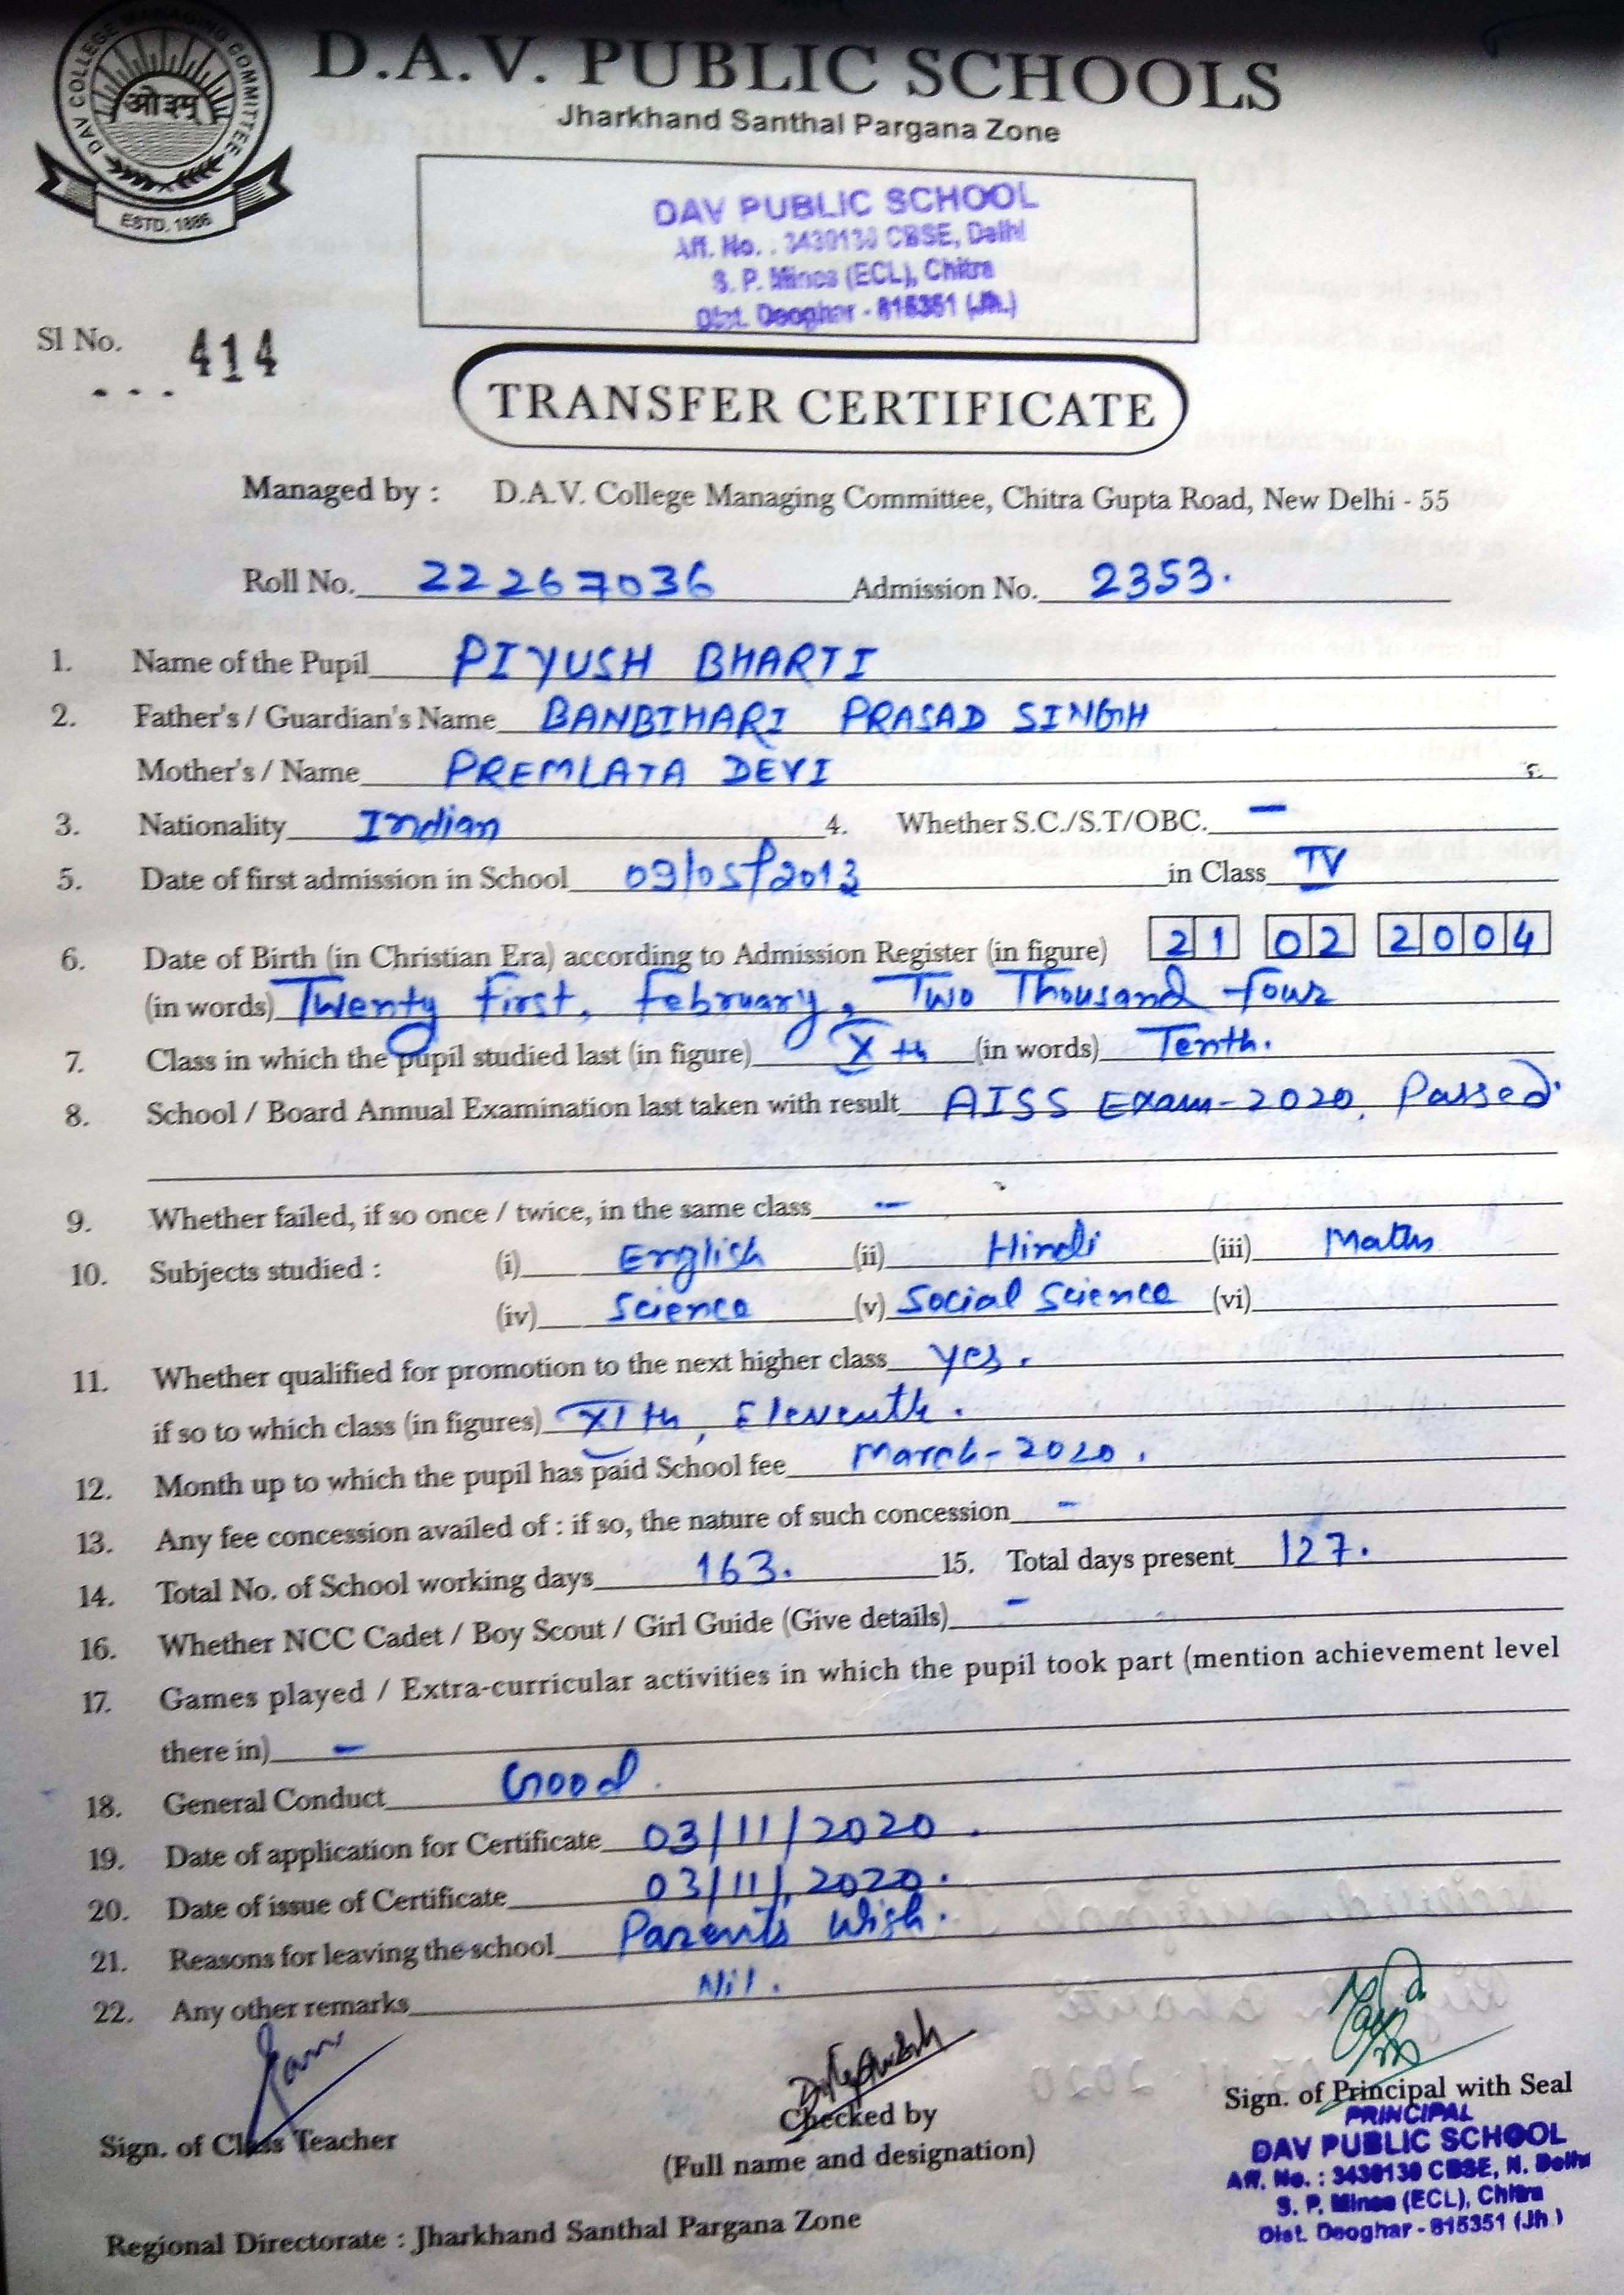 DAV COLLEGE MANAGING COMMITTEE
ओ३म्
ESTD. 1886
D.A.V. PUBLIC SCHOOLS
Jharkhand Santhal Pargana Zone
DAV PUBLIC SCHOOL
Aff. No. : 3430130 CBSE, Delhi
S. P. Mines (ECL), Chitra
Dist. Deoghar - 815351 (Jh.)
Sl No. 414
TRANSFER CERTIFICATE
Managed by : D.A.V. College Managing Committee, Chitra Gupta Road, New Delhi - 55
Roll No. 22267036 Admission No. 2353.
1. Name of the Pupil PIYUSH BHARTI
2. Father's / Guardian's Name BANBIHARI PRASAD SINGH
Mother's / Name PREMLATA DEVI
3. Nationality Indian 4. Whether S.C./S.T/OBC. —
5. Date of first admission in School 09/05/2013 in Class IV
6. Date of Birth (in Christian Era) according to Admission Register (in figure) 21 02 2004
(in words) Twenty First, February, Two Thousand four
7. Class in which the pupil studied last (in figure) Xth (in words) Tenth.
8. School / Board Annual Examination last taken with result AISS Exam-2020. Passed
9. Whether failed, if so once / twice, in the same class —
10. Subjects studied : (i) English (ii) Hindi (iii) Maths
(iv) Science (v) Social Science (vi)
11. Whether qualified for promotion to the next higher class yes.
if so to which class (in figures) XIth, Eleventh.
12. Month up to which the pupil has paid School fee March-2020.
13. Any fee concession availed of : if so, the nature of such concession -
14. Total No. of School working days 163. 15. Total days present 127.
16. Whether NCC Cadet / Boy Scout / Girl Guide (Give details) -
17. Games played / Extra-curricular activities in which the pupil took part (mention achievement level
there in) —
18. General Conduct Good.
19. Date of application for Certificate 03/11/2020.
20. Date of issue of Certificate 03/11/2020.
21. Reasons for leaving the school Parents Wish.
22. Any other remarks Nil.
Sign. of Class Teacher
Checked by
(Full name and designation)
Sign. of Principal with Seal
PRINCIPAL
DAV PUBLIC SCHOOL
Aff. No. : 3430130 CBSE, N. Delhi
S. P. Mines (ECL), Chitra
Dist. Deoghar - 815351 (Jh.)
Regional Directorate : Jharkhand Santhal Pargana Zone